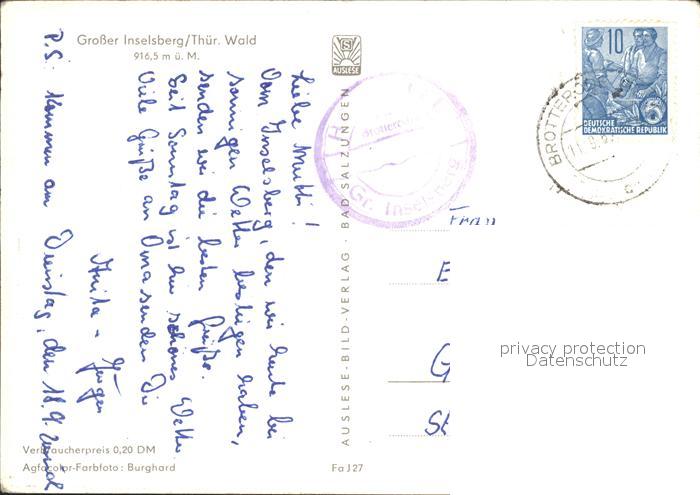 Großer Inselsberg/Thür. Wald
916,5 m ü. M.
AUSLESE
Liebe Mutti!
Vom Inselsberg, den wir heute bei
sonnigen Wetter bestiegen haben,
senden wir die besten Grüße.
Seit Sonntag ist hier schönes Wetter.
Viele Grüße an Oma senden Dir
Anita + Jürgen
P.S: Kommen am Dienstag, den 18.9. zurück
Verbraucherpreis 0,20 DM
Agfacolor-Farbfoto: Burghard
AUSLESE-BILD-VERLAG · BAD SALZUNGEN
Fa J 27
Brotterode
Gr. Inselsberg
BROTTERODE
11.9.
10
DEUTSCHE
DEMOKRATISCHE REPUBLIK
Frau
E
G
St
privacy protection
Datenschutz